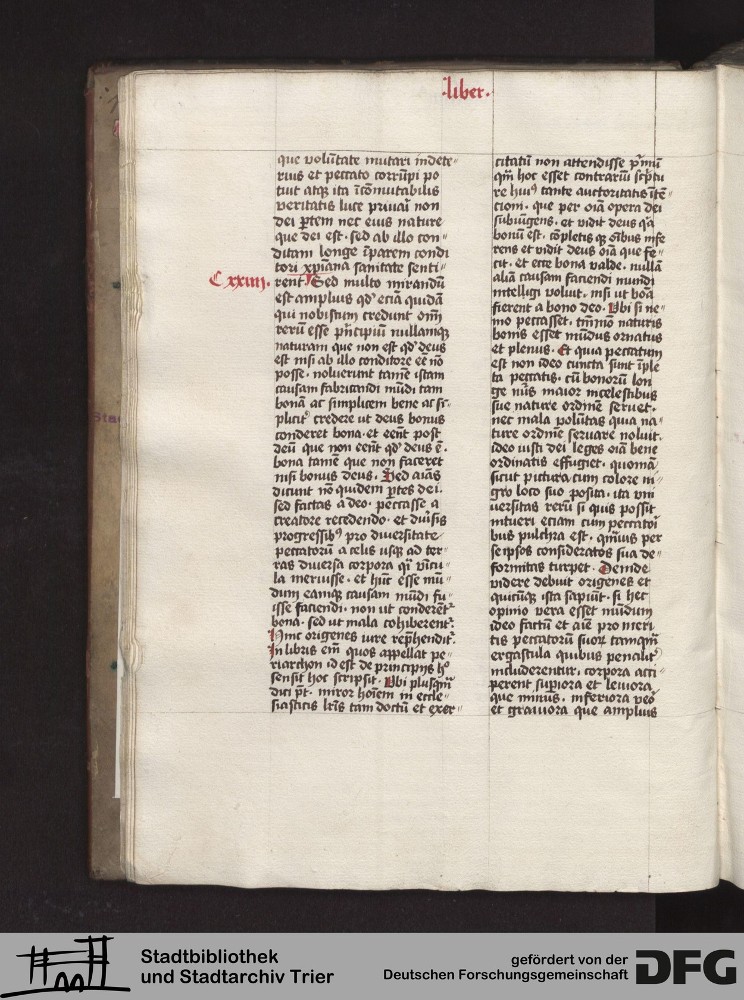 ·liber·
que volūtate mutari indete〃
rius et peccato corrūpi po
tuit atq̨ ita īcōmutabilis
veritatis luce priuari non
dei p̄tem nec eius nature
que dei est · sed ab illo con〃
ditam longe īparem condi
tori xp̄iana sanitate senti〃
C xxiiij.
rent Sed multo mirandū
est amplius qd' eciā quidā
qui nobiscum credunt om̄
rerū esse p̄ncipiū nullamq̨
naturam que non est qd' deus
est nisi ab illo conditore eē nō
posse · noluerunt tamē istam
causam fabricandi mūdi tam
bonā ac simplicem bene ac sī〃
plicit' credere ut deus bonus
conderet bona · et eēnt post
deū que non eēnt qd' deus ē ·
bona tamē que non faceret
nisi bonus deus · Sed aīas
dicunt nō quidem p̄tes dei ·
sed factas a deo · peccasse a
creatore recedendo · et diuīsis
progressib9 pro diuersitate
peccatorū a celis usq̨ ad ter〃
ras diuersa corpora q̄i vīcu〃
la meruisse · et hūc esse mū〃
dum eamq̨ causam mūdi fu〃
isse faciendi · non ut conderēt'
bona · sed ut mala cohiberent'
Hinc origenes iure rep̄hendit'
In libris em̄ quos appellat pe〃
riarchon id est de principijs h°
sensit hoc scripsit · Ubi plusq̄m
dici p̄t · miror hoīem in eccle〃
siasticis lr̄is tam doctū et exer〃
citatū non attendisse p̄mū
q̄m hoc esset contrariū sc̄ptu
re hui9 tante auctoritatis ītē〃
cioni · que per oīa opera dei
subiūgens · et vidit deus q̄a
bonū est · cōpletis q̨ om̄ibus infe
rens et vidit deus oīa que fe〃
cit · et ecce bona valde · nullā
aliā causam faciendi mundi
intelligi voluit · nisi ut boā
fierent a bono deo · Ubi si ne〃
mo peccasset · tm̄mō naturis
bonis esset mūdus ornatus
et plenus · Et quia peccatum
est non ideo cuncta sunt īple
ta peccatis · cū bonorū lon
ge nūs maior in celestibus
sue nature ordinē seruet ·
nec mala volūtas quia na〃
ture ordinē seruare noluit ·
ideo iusti dei leges oīa bene
ordinatis effugiet · quoniā
sicut pictura cum colore ni〃
gro loco suo posita · ita vni
uersitas rerū si quis possit
intueri eciam cum peccatori
bus pulchra est · q̄muis per
se ipsos consideratos sua de〃
formitas turpet · Deinde
videre debuit origenes et
quicūq̨ ista sapiūt · si hec
opinio vera esset mūdum
ideo factū et aīe pro meri
tis peccatorū suorū tamq̄m
ergastula quibus penalit'
includerentur · corpora acci〃
perent superiora et leuiora
que minus · inferiora vēo
et grauiora que amplius
Stadtbibliothek
und Stadtarchiv Trier
gefördert von der
Deutschen Forschungsgemeinschaft
DFG